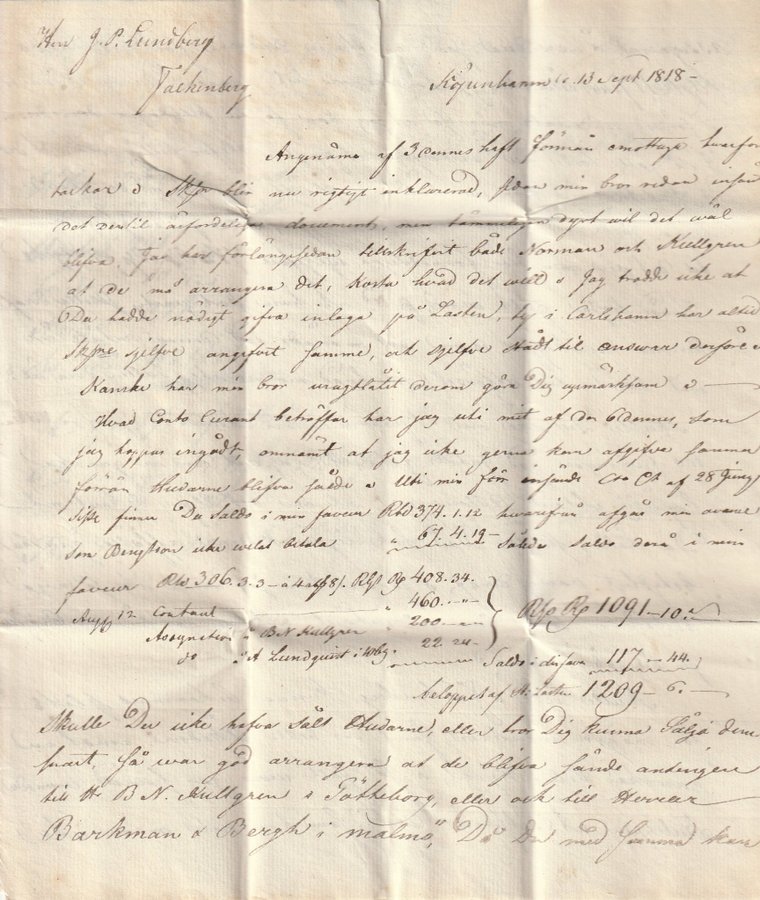 Herr J. P. Lundberg
Falkenberg
Kjöpenhamn d. 13 Sept 1818 -
Angenäma af 3 dennes haft förmån emottaga hwarför
tackar. Skpr blir nu rigtigt inklarerad, sedan min bror redan insändt
det dertil ärforderliga document, men temmeligen dyrt wil det wäl
blifva. Jag har för länge sedan tillskrifvit både Norman och Kullgren
at de må arrangera det, kosta hvad det will. Jag trodde icke at
Du hade nödigt gifva inlaga på Lasten, ty i Carlshamn har altid
Skpre sjelfve angifvit samme, och sjelfve stådt til answar derföre.
Kanske har min bror uraktlåtit derom göra Dig upmärksam. -
Hvad Conto Courant beträffar har jag uti mit af den 6 dennes, som
jag hoppas ingådt, omnämt at jag icke gerna kan afgifva samma
förrän Hudarne blifva sålde. Uti min förr insände Cto Ct af 28 Juny
sistl. finner Du Saldo i min faveur Rbd 374.1.12 hwarifrån afgår min
som Bengtson icke welat betala " 67.4.19 - Således saldo derå i min
faveur Rbd 306.3.3 - à 4 Rgs Rp 408.34.
Aug 12 Contant " 460. - "
Assignation à B N Kullgren " 200 - "
do " A Lundquist i Wbg. 22.24 -
Rgs Rp 1091 - 10.
Saldo i din faveur 117 - 44.
beloppet af Lasten 1209 - 6. -
Skulle Du icke hafva sålt Hudarne, eller tror Dig kunna sälja dem
snart, så war god arrangera at de blifva sände antingen
till Hr B. N. Kullgren i Götheborg, eller och till Herrar
Barkman & Bergh i Malmö, Då Du med samma kan